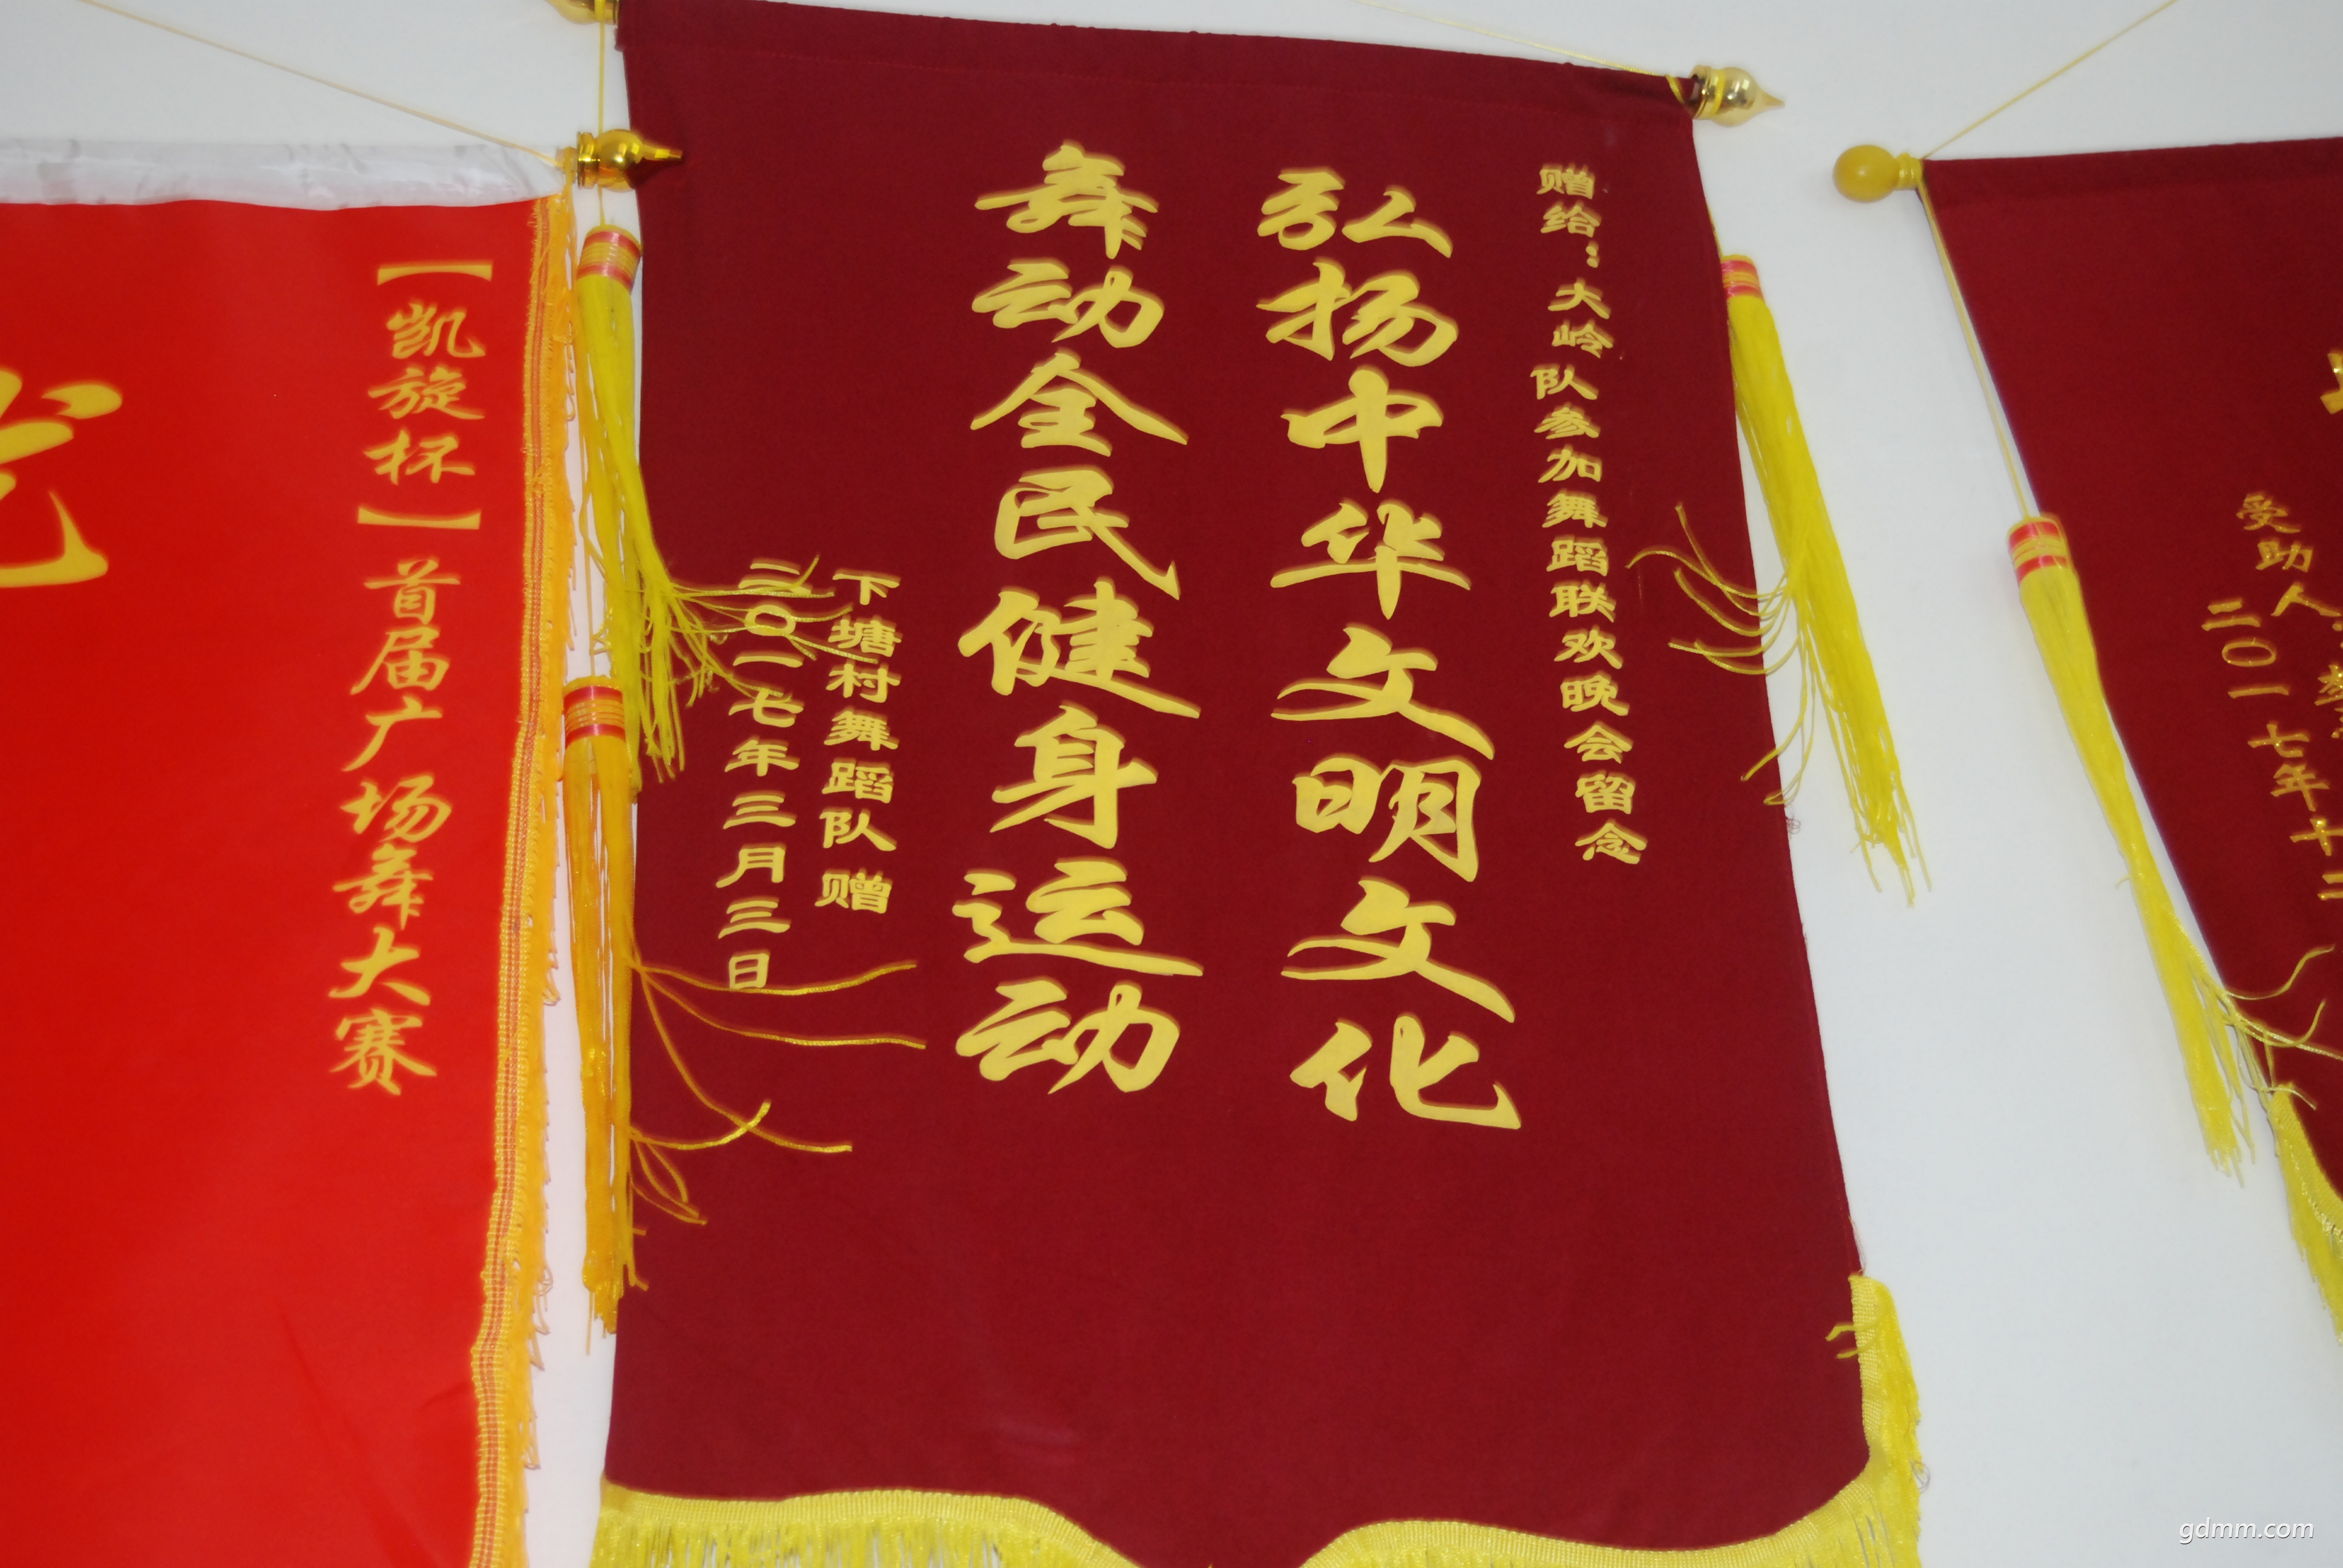 赠给：大岭队参加舞蹈联欢晚会留念
弘扬中华文明文化
舞动全民健身运动
下塘村舞蹈队赠
二〇一七年三月三日
【凯旋杯】首届广场舞大赛
受助人
二〇一七年十二
gdmm.com